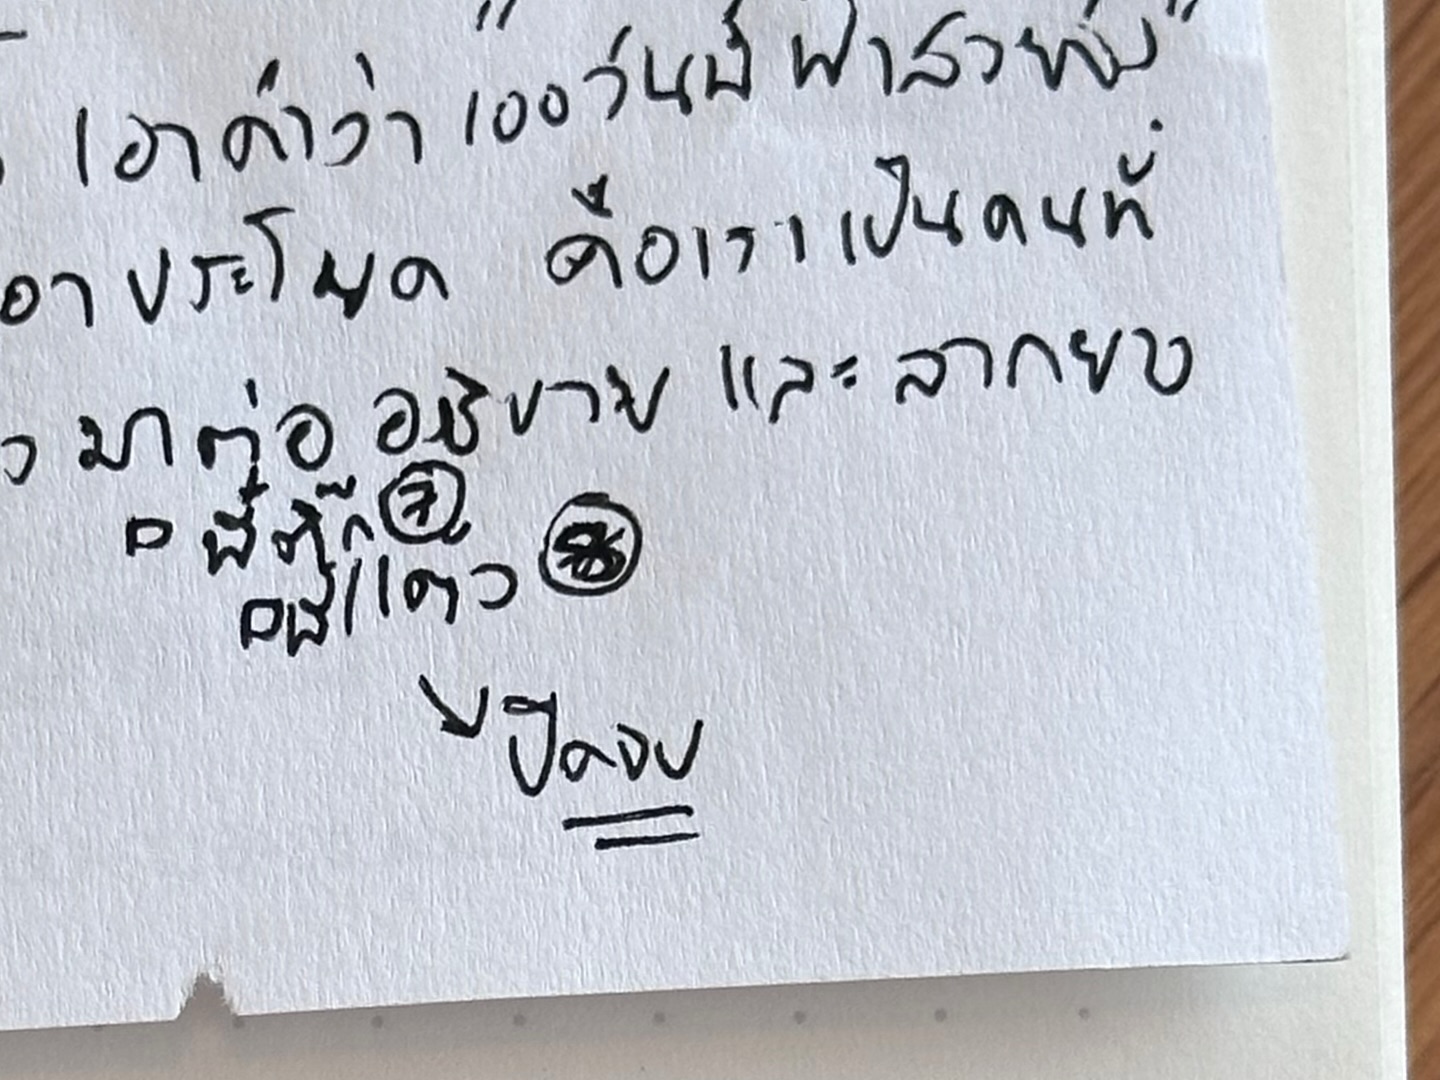 เอาคำว่า "100 วันที่ฟ้าสวย
อาประโมูด คือเราเป็นคนที่
มาต่อ อธิบาย และ ลากยาว
พี่ตุ๊ก
พี่แต๋ว
ปิดจบ